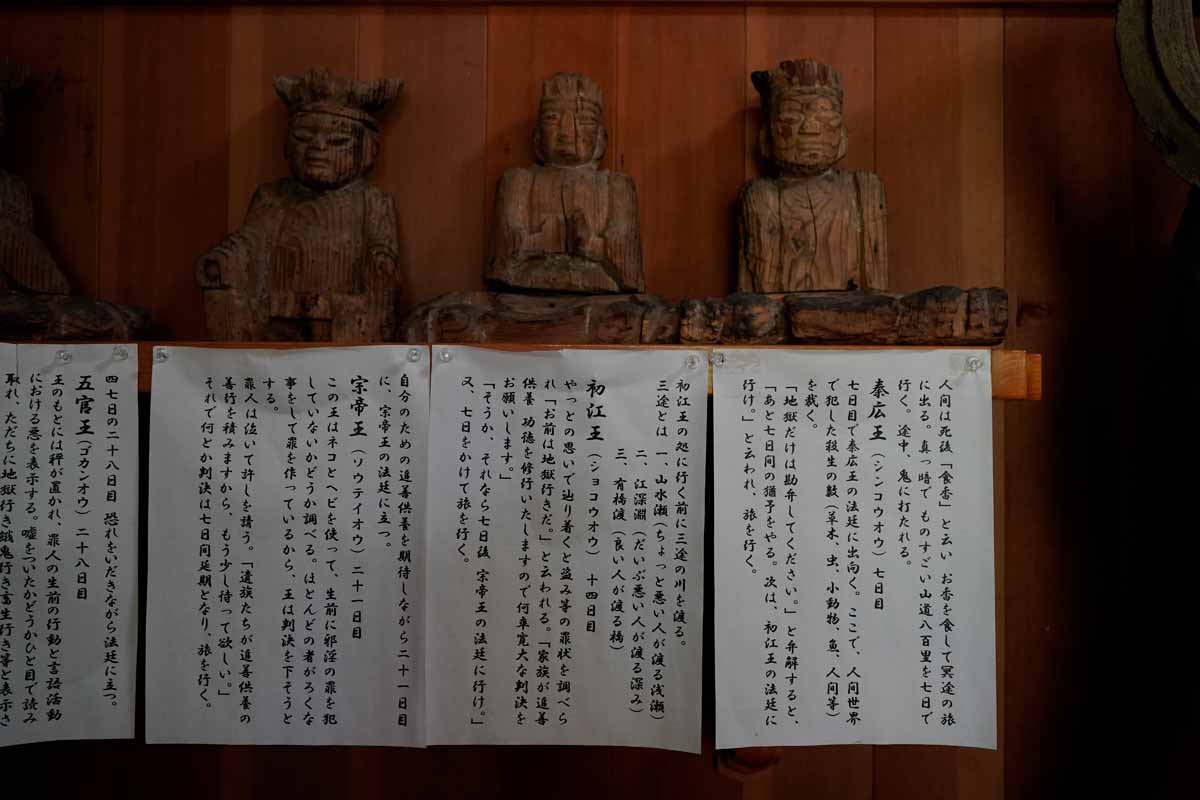 人間は死後「食香」と云い お香を食して冥途の旅
に出る。真っ暗で ものすごい山道八百里を七日で
行く。途中、鬼に打たれる。
秦広王（シンコウオウ）七日目
七日目で秦広王の法廷に出向く。ここで、人間世界
で犯した殺生の数（草木、虫、小動物、魚、人間等）
を裁く。
「地獄だけは勘弁してください。」と弁解すると、
「あと七日間の猶予をやる。次は、初江王の法廷に
行け。」と云われ、旅を行く。
初江王の処に行く前に三途の川を渡る。
三途とは 一、山水瀬（ちょっと悪い人が渡る浅瀬）
二、江深淵（だいぶ悪い人が渡る深み）
三、有橋渡（良い人が渡る橋）
初江王（ショコウオウ）十四日目
やっとの思いで辿り着くと盗み等の罪状を調べら
れ「お前は地獄行きだ。」と云われる。「家族が追善
供養 功徳を修行いたしますので何卒寛大な判決を
お願いします。」
「そうか、それなら七日後 宗帝王の法廷に行け。」
又、七日をかけて旅を行く。
自分のための追善供養を期待しながら二十一日目
に、宗帝王の法廷に立つ。
宗帝王（ソウテイオウ）二十一日目
この王はネコとヘビを使って、生前に邪淫の罪を犯
していないかどうか調べる。ほとんどの者がろくな
事をして罪を作っているから、王は判決を下そうと
する。
罪人は泣いて許しを請う。「遺族たちが追善供養の
善行を積みますから、もう少し待って欲しい。」
それで何とか判決は七日間延期となり、旅を行く。
四七日の二十八日目 恐れをいだきながら法廷に立つ。
五官王（ゴカンオウ）二十八日目
王のもとには秤が置かれ、罪人の生前の行動と言語活動
における悪を表示する。嘘をついたかどうかひと目で読み
取れ、ただちに地獄行き餓鬼行き畜生行き等と表示さ